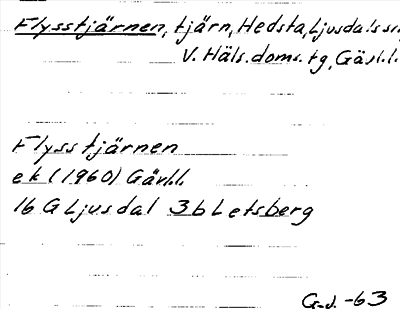 Flysstjärnen, tjärn, Hedsta, Ljusdals sn,
V. Häls. doms. tg, Gävl. l.
Flysstjärnen
ek (1960) Gävl. l.
16 G Ljusdal 3b Letsberg
G-J. -63